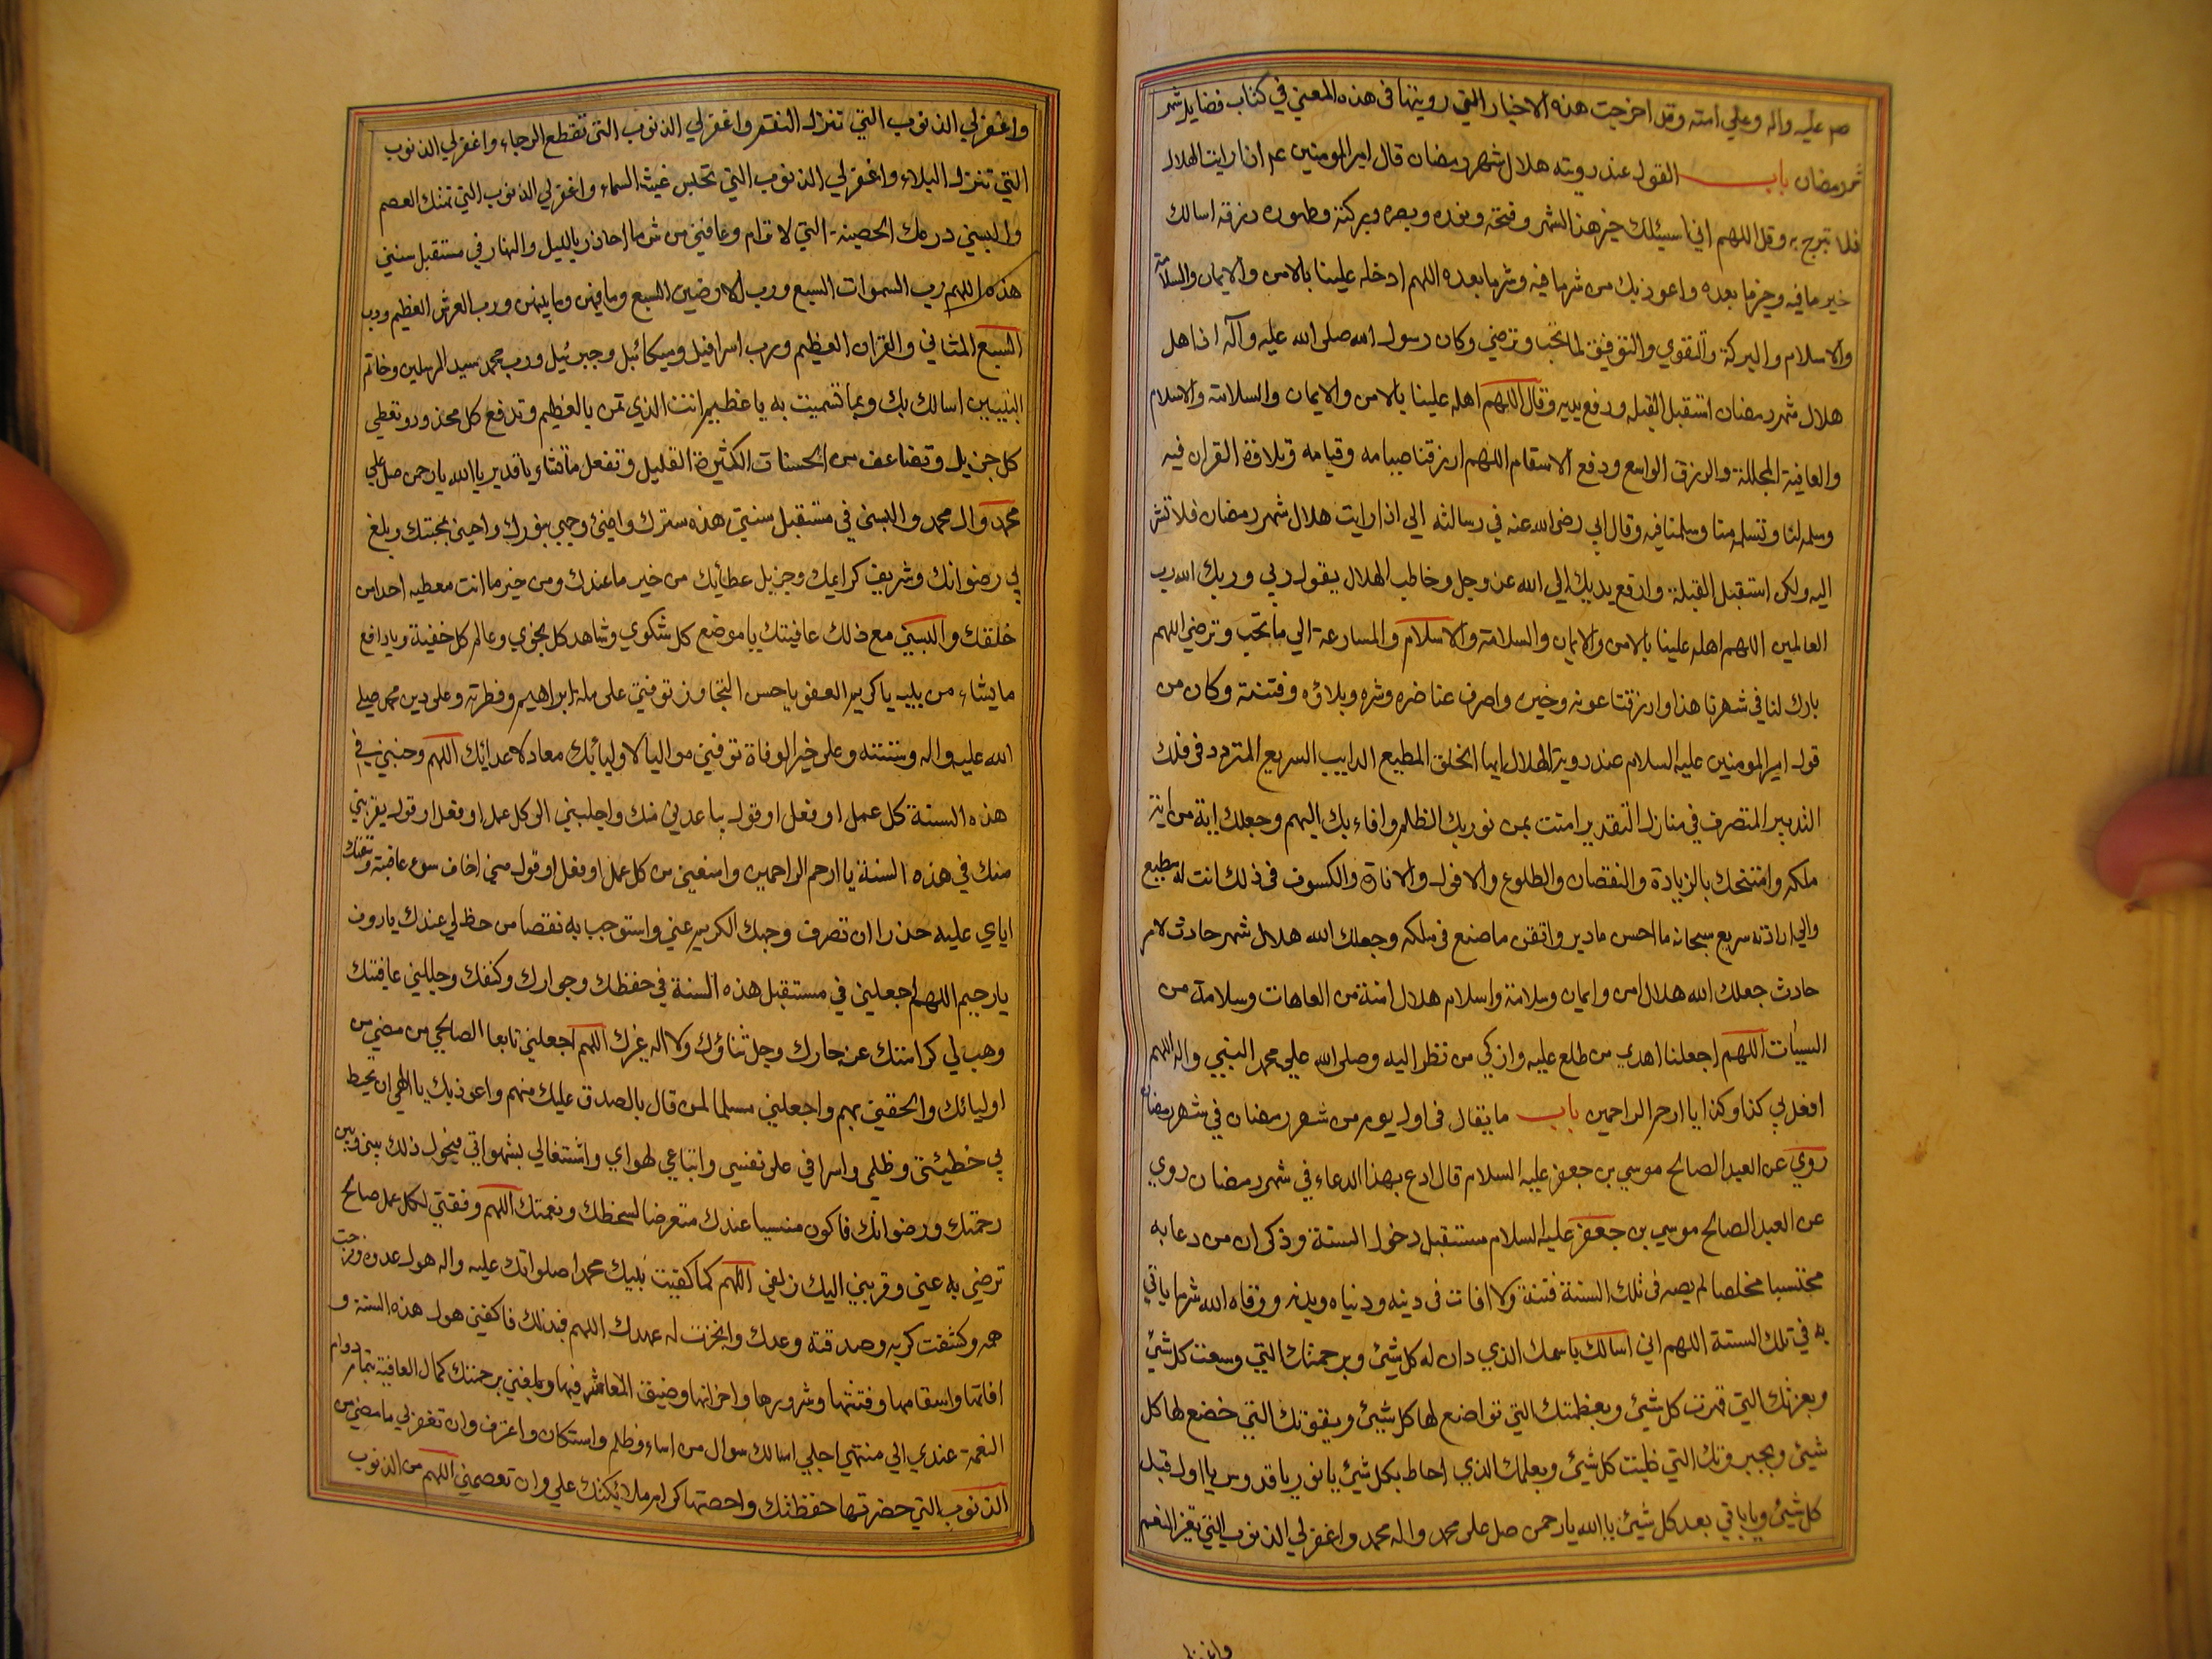 صم عليه واله وعلي امته وقد اخرجت هذه الاخبار التي رويتها في هذه المعني في كتاب فضايل شهر
شهر رمضان باب القول عند روية هلال شهر رمضان قال امير المومنين عم اذا رايت الهلال
فلا تبرح به وقل اللهم اني اسيئلك خير هذا الشهر وفتحه ونوره وبصره وبركته وطهوره ورزقه اسالك
خير ما فيه وخير ما بعده واعوذ بك من شر ما فيه وشر ما بعده اللهم ادخله علينا بالامن والايمان والسلامة
والاسلام والبركة والتقوي والتوفيق لما تحب وترضي وكان رسول الله صلى الله عليه وآله اذا هل
هلال شهر رمضان استقبل القبله ورفع يديه وقال اللهم اهله علينا بالامن والايمان والسلامة والاسلام
والعافية المجللة والرزق الواسع ودفع الاسقام اللهم ارزقنا صيامه وقيامه وتلاوة القران فيه
وسلمه لنا وتسلمه منا وسلمنا فيه وقال ابي رضى الله عنه في رسالته الي اذا رايت هلال شهر رمضان فلا تشر
اليه ولكن استقبل القبلة وارفع يديك الي الله عز وجل وخاطب الهلال يقول ربي وربك الله رب
العالمين اللهم اهله علينا بالامن والايمان والسلامة والاسلام والمسارعة الي ما تحب وترضي اللهم
بارك لنا في شهرنا هذا وارزقنا عونه وخيره واصرف عنا ضره وشره وبلاؤه وفتنته وكان من
قول امير المومنين عليه السلام عند روية الهلال ايها الخلق المطيع الدايب السريع المتردد في فلك
التدبير المتصرف في منازل التقدير امنت بمن نور بك الظلم واضاء بك البهم وجعلك اية من اية
ملكه وامتحنك بالزيادة والنقصان والطلوع والافول والانارة والكسوف في ذلك انت له مطيع
والي ارادته سريع سبحانه ما احسن ما دبر واتقن ما صنع في ملكه وجعلك الله هلال شهر حادث لامر
حادث جعلك الله هلال امن وايمان وسلامة واسلام هلال امنة من العاهات وسلامة من
السيئات اللهم اجعلنا اهدي من طلع عليه وازكي من نظر اليه وصلى الله علي محمد النبي واله اللهم
افعل بي كذا وكذا يا ارحم الراحمين باب ما يقال في اول يوم من شهر رمضان في شهر رمضان
روي عن العبد الصالح موسي بن جعفر عليه السلام قال ادع بهذا الدعاء في شهر رمضان روي
عن العبد الصالح موسي بن جعفر عليه السلام مستقبل دخول السنة وذكر ان من دعا به
محتسبا مخلصا لم يصبه في تلك السنة فتنة ولا افات في دينه ودنياه وبدنه ووقاه الله شر ما ياتي
به في تلك السنة اللهم اني اسالك باسمك الذي دان له كل شئ وبرحمتك التي وسعت كل شئ
وبعزتك التي قهرت كل شئ وبعظمتك التي تواضع لها كل شيئ وبقوتك التي خضع لها كل
شيئ وبجبروتك التي غلبت كل شئ وبعلمك الذي احاط بكل شئ يا نور يا قدوس يا اول قبل
كل شئ ويا باقي بعد كل شئ يا الله يا رحمن صل على محمد واله محمد واغفر لي الذنوب التي تغير النعم
واغفر لي الذنوب التي تنزل النقم واغفر لي الذنوب التي تقطع الرجاء واغفر لي الذنوب
التي تنزل البلاء واغفر لي الذنوب التي تحبس غيث السماء واغفر لي الذنوب التي تهتك العصم
والبسني درعك الحصينة التي لا ترام وعافني من شر ما احاذر بالليل والنهار في مستقبل سنتي
هذه اللهم رب السموات السبع ورب الارضين السبع وما فيهن وما بينهن ورب العرش العظيم ورب
السبع المثاني والقران العظيم ورب اسرافيل وميكائيل وجبرئيل ورب محمد سيد المرسلين وخاتم
النبيين اسالك بك وبما تسميت به يا عظيم انت الذي تمن بالعظيم وتدفع كل محذور وتعطي
كل جزيل وتضاعف من الحسنات الكثيرة القليل وتفعل ما تشاء يا قدير يا الله يا رحمن صل علي
محمد وال محمد والبسني في مستقبل سنتي هذه سترك واضئ وجهي بنورك واحيني بمحبتك وبلغ
بي رضوانك وشريف كرائمك وجزيل عطائك من خير ما عندك ومن خير ما انت معطيه احدا من
خلقك والبسني مع ذلك عافيتك يا موضع كل شكوي وشاهد كل نجوي وعالم كل خفية ويا دافع
ما يشاء من بلية يا كريم العفو يا حسن التجاوز توفني على ملة ابراهيم وفطرته وعلى دين محمد صلى
الله عليه واله وسنته وعلى خير الوفاة توفني مواليا لاوليائك معاد لاعدائك اللهم وجنبني في
هذه السنة كل عمل او فعل او قول يباعدني منك واجلبني الى كل عمل او فعل او قول يقربني
منك في هذه السنة يا ارحم الراحمين وامنعني من كل عمل او فعل او قول مني اخاف سوء عاقبته ومقتك
اياي عليه حذرا ان تصرف وجهك الكريم عني واستوجب به نقصا من حظ لي عندك يا روف
يا رحيم اللهم اجعلني في مستقبل هذه السنة في حفظك وجوارك وكنفك وجللني عافيتك
وهب لي كرامتك عز جارك وجل ثناؤك ولا اله غيرك اللهم اجعلني تابعا الصالحي من مضي من
اوليائك والحقني بهم واجعلني مسلما لمن قال بالصدق عليك منهم واعوذ بك يا الهي ان تحيط
بي خطيئتي وظلمي واسرافي على نفسي واتباعي لهواي واشتغالي بشهواتي فيحول ذلك بيني وبين
رحمتك ورضوانك فاكون منسيا عندك متعرضا لسخطك ونقمتك اللهم وفقني لكل عمل صالح
ترضي به عني وقربني اليك زلفي اللهم كما كفيت نبيك محمدا صلواتك عليه واله هول عدوه وفرجت
همه وكشفت كربه وصدقته وعدك وانجزت له عهدك اللهم فبذلك فاكفني هول هذه السنة و
افاتها واسقامها وفتنتها وشرورها واحزانها وضيق المعاش فيها وبلغني برحمتك كمال العافية بتمام دوام
النعمة عندي الي منتهي اجلي اسالك سوال من اساء وظلم واستكان واعترف وان تغفر لي ما مضي من
الذنوب التي حضرتها حفظتك واحصتها كرام ملائكتك علي وان تعصمني اللهم من الذنوب